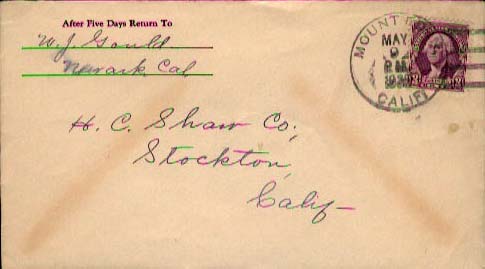 After Five Days Return To
W. J. Gould
Newark, Cal
MOUNT
MAY
CALIF
H. C. Shaw Co;
Stockton,
Calif—